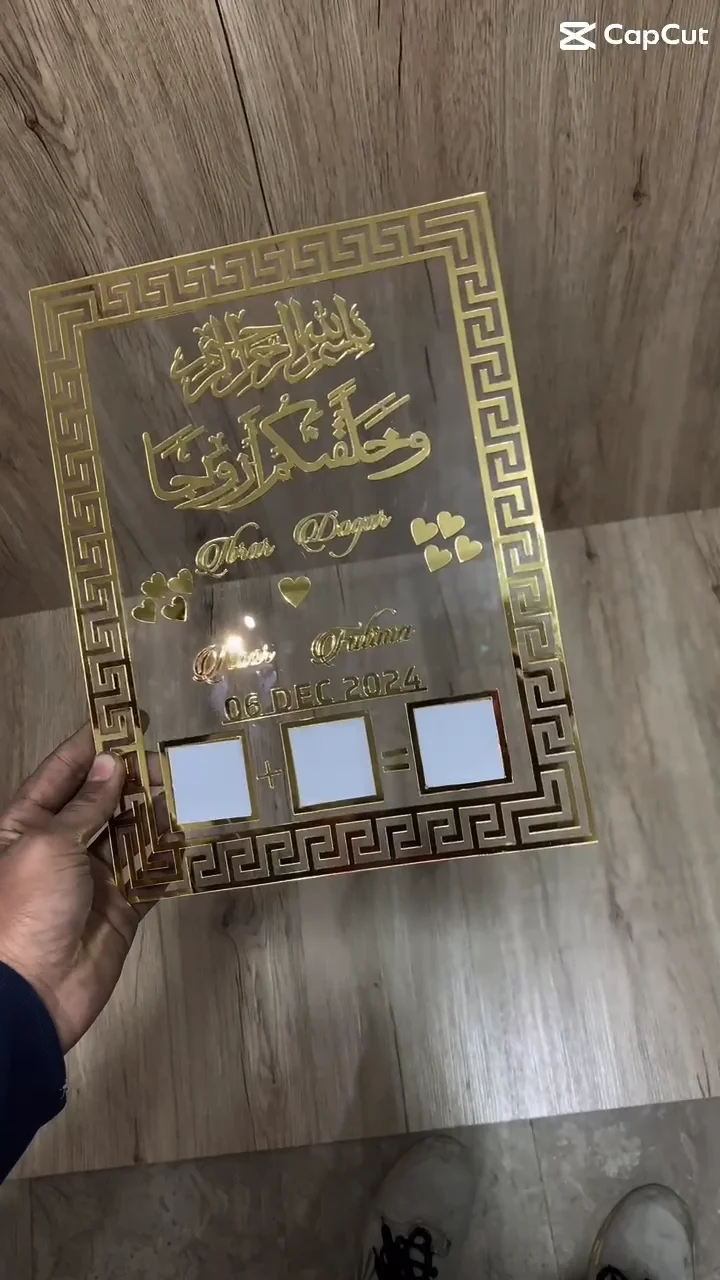 CapCut
بسم الله الرحمن الرحيم
وَخَلَقْنَكُمْ أَزْوَاجًا
Ibrar Dagar
Fatima
06 DEC 2024
+ =